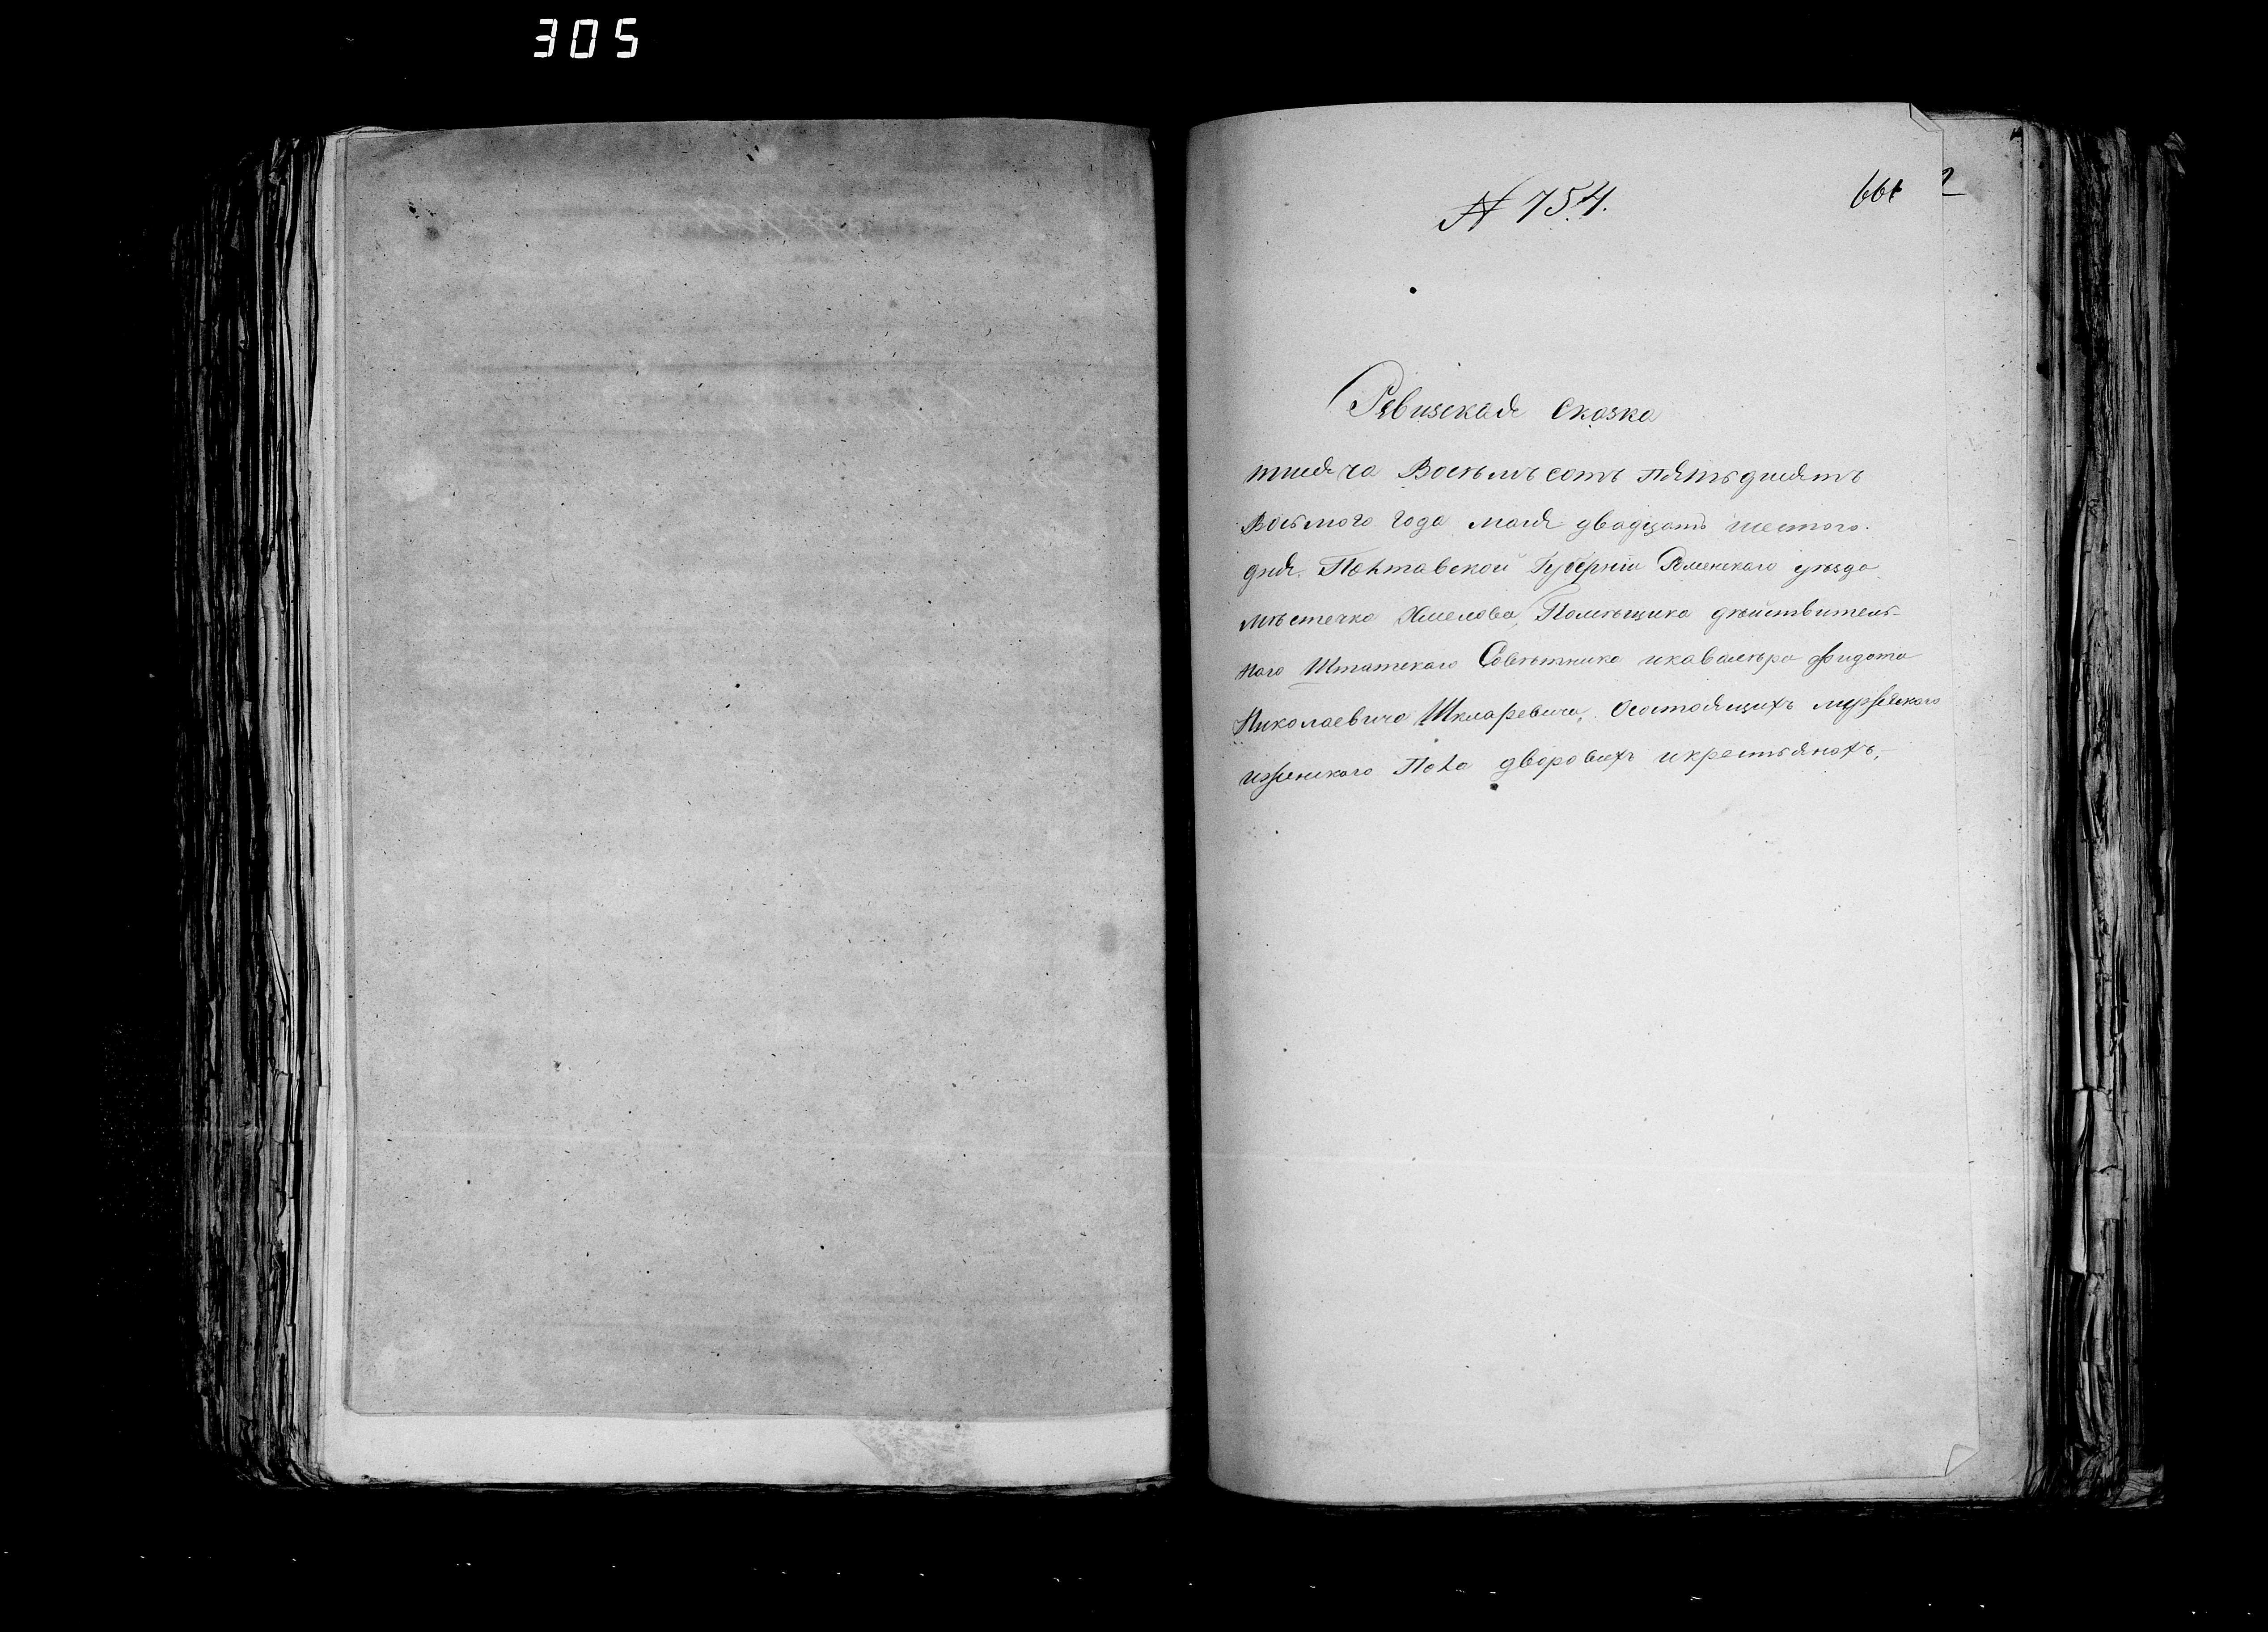 305
№ 754.
661
Ревизская Сказка
тисяча Восемъ сотъ пятьдисятъ
Восьмого года маия двадцать шестого.
дня. Полтавской Губерніи Роменского уѣзда
мѣстечка Хмелова, Помѣщика дѣйствитель-
ного Штатского Совѣтника икавалѣра Фидота
Николаевича Шкларевича, Осостоящихъ мужескаго
иженского Пола дворовихъ икрестьянахъ,